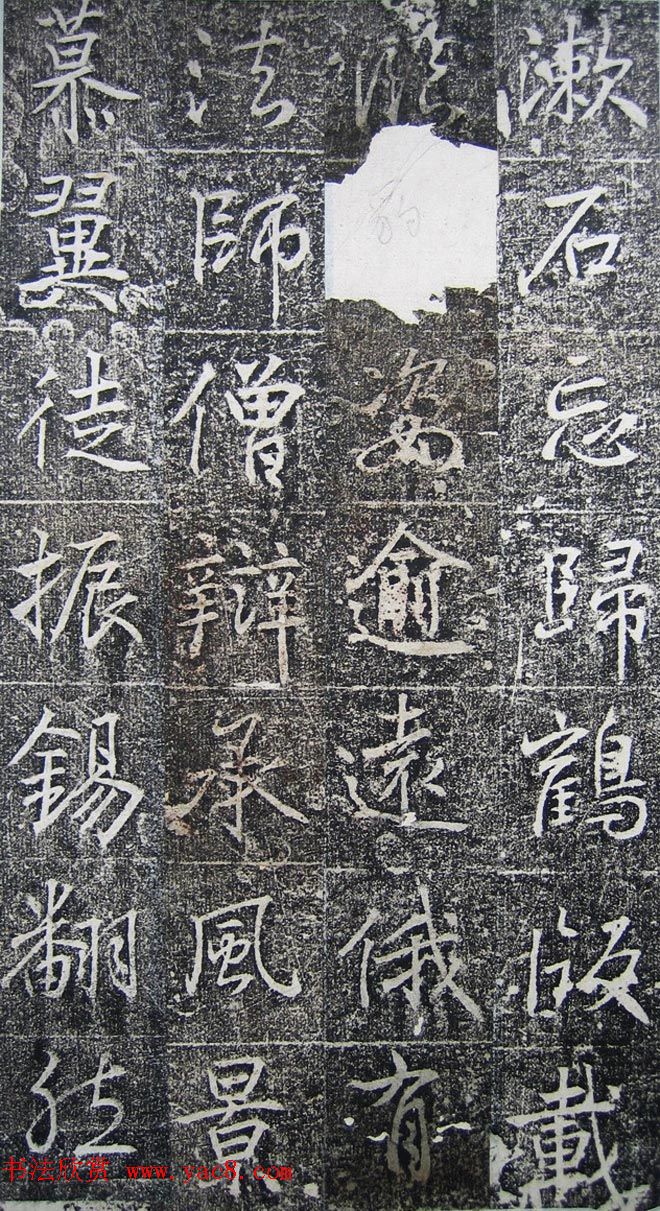 漱石忘歸鶴版載
豹姿逾遠俄有
法師僧辯承風景
慕翼徒振錫翻然
书法欣赏 www.yac8.com